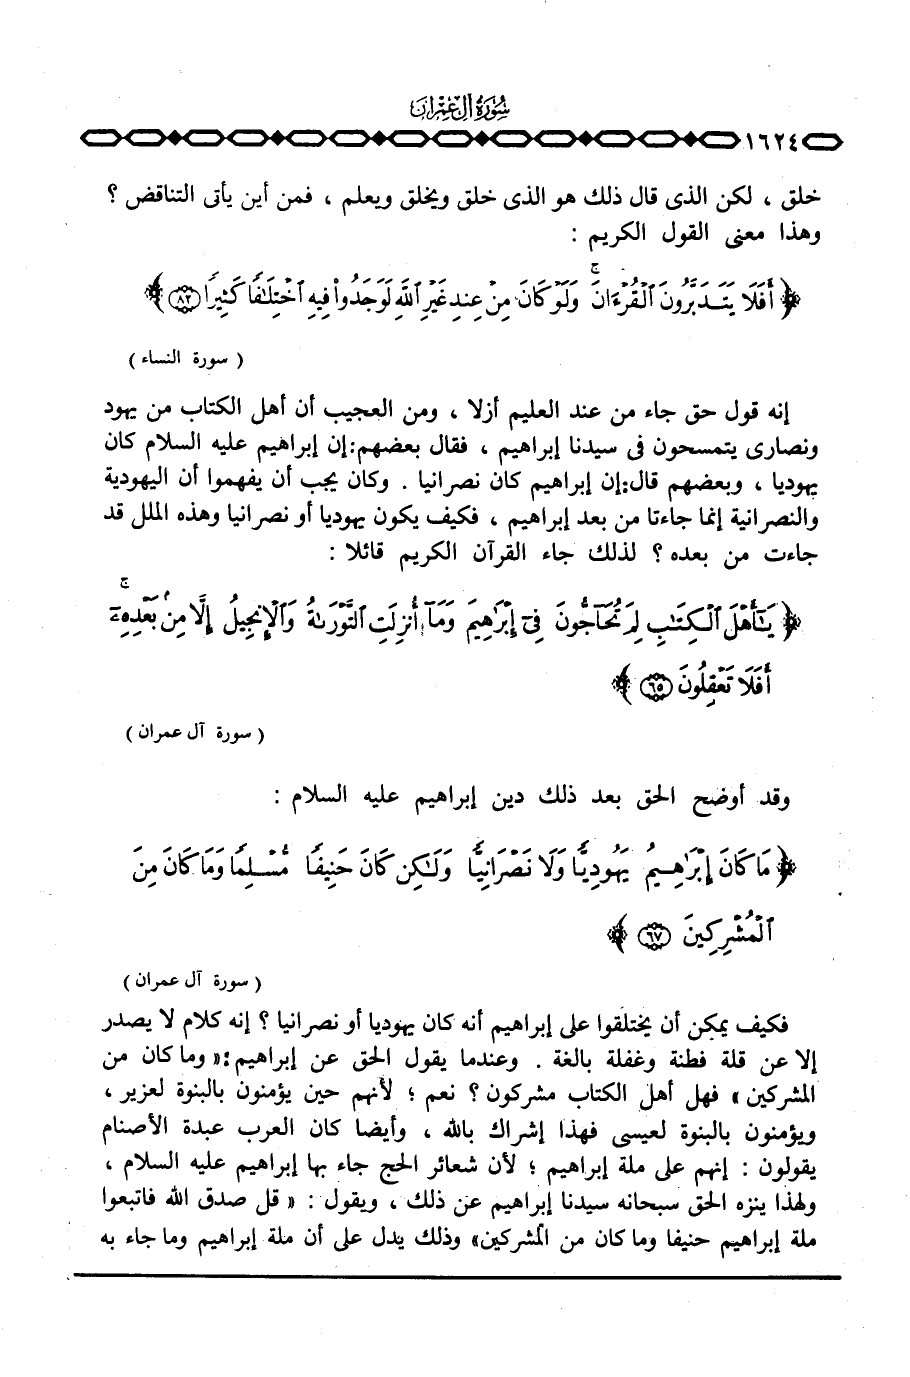 سُورَةُ آلِ عِمْرَان
١٦٢٤
خلق ، لكن الذى قال ذلك هو الذى خلق ويخلق ويعلم ، فمن أين يأتى التناقض ؟
وهذا معنى القول الكريم :
﴿ أَفَلَا يَتَدَبَّرُونَ ٱلْقُرْءَانَ ۚ وَلَوْ كَانَ مِنْ عِندِ غَيْرِ ٱللَّهِ لَوَجَدُوا۟ فِيهِ ٱخْتِلَٰفًا كَثِيرًا ٨٢ ﴾
( سورة النساء )
إنه قول حق جاء من عند العليم أزلا ، ومن العجيب أن أهل الكتاب من يهود
ونصارى يتمسحون فى سيدنا إبراهيم ، فقال بعضهم:إن إبراهيم عليه السلام كان
يهوديا ، وبعضهم قال:إن إبراهيم كان نصرانيا . وكان يجب أن يفهموا أن اليهودية
والنصرانية إنما جاءتا من بعد إبراهيم ، فكيف يكون يهوديا أو نصرانيا وهذه الملل قد
جاءت من بعده ؟ لذلك جاء القرآن الكريم قائلا :
﴿ يَٰٓأَهْلَ ٱلْكِتَٰبِ لِمَ تُحَآجُّونَ فِىٓ إِبْرَٰهِيمَ وَمَآ أُنزِلَتِ ٱلتَّوْرَىٰةُ وَٱلْإِنجِيلُ إِلَّا مِنۢ بَعْدِهِۦٓ ۚ
أَفَلَا تَعْقِلُونَ ٦٥ ﴾
( سورة آل عمران )
وقد أوضح الحق بعد ذلك دين إبراهيم عليه السلام :
﴿ مَا كَانَ إِبْرَٰهِيمُ يَهُودِيًّا وَلَا نَصْرَانِيًّا وَلَٰكِن كَانَ حَنِيفًا مُّسْلِمًا وَمَا كَانَ مِنَ
ٱلْمُشْرِكِينَ ٦٧ ﴾
( سورة آل عمران )
فكيف يمكن أن يختلقوا على إبراهيم أنه كان يهوديا أو نصرانيا ؟ إنه كلام لا يصدر
إلا عن قلة فطنة وغفلة بالغة . وعندما يقول الحق عن إبراهيم : « وما كان من
المشركين » فهل أهل الكتاب مشركون ؟ نعم ؛ لأنهم حين يؤمنون بالبنوة لعزير ،
ويؤمنون بالبنوة لعيسى فهذا إشراك بالله ، وأيضا كان العرب عبدة الأصنام
يقولون : إنهم على ملة إبراهيم ؛ لأن شعائر الحج جاء بها إبراهيم عليه السلام ،
ولهذا ينزه الحق سبحانه سيدنا إبراهيم عن ذلك ، ويقول : « قل صدق الله فاتبعوا
ملة إبراهيم حنيفا وما كان من المشركين» وذلك يدل على أن ملة إبراهيم وما جاء به